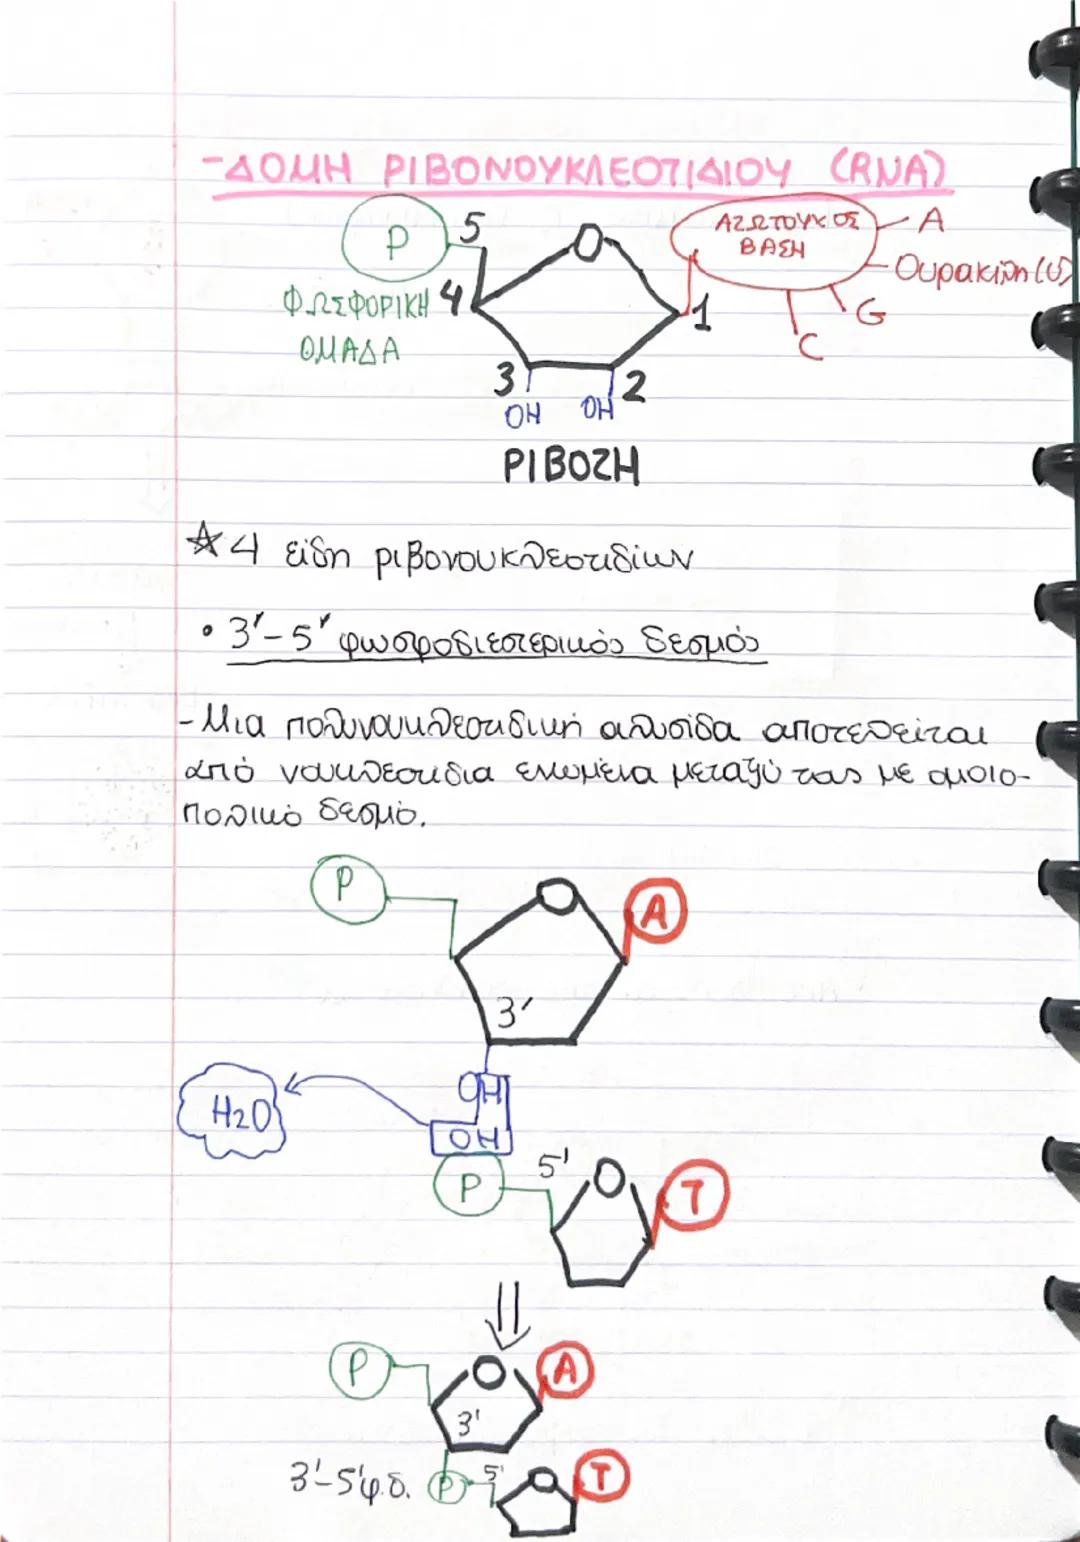 -ΔΟΜΗ ΡΙΒΟΝΟΥΚΛΕΟΤΙΔΙΟΥ (RNA)
P
5
O
ΑΖΩΤΟΥΧΟΣ
ΒΑΣΗ
A
Ουρακίλη (U)
G
C
ΦΩΣΦΟΡΙΚΗ
ΟΜΑΔΑ
4
1
3
2
OH
OH
ΡΙΒΟΖΗ
☆4 είδη ριβονουκλεοτιδίων
• 3'-5' φωσφοδιεστερικός δεσμός
-Μια πολυνουκλεοτιδική αλυσίδα αποτελείται
από νουκλεοτίδια ενωμένα μεταξύ τους με ομοιο-
πολικό δεσμό.
P
O
A
3'
OH
H2O
OH
P
5'
O
T
P
O
A
3'
3'-5'φ.δ.
P
5'
O
T